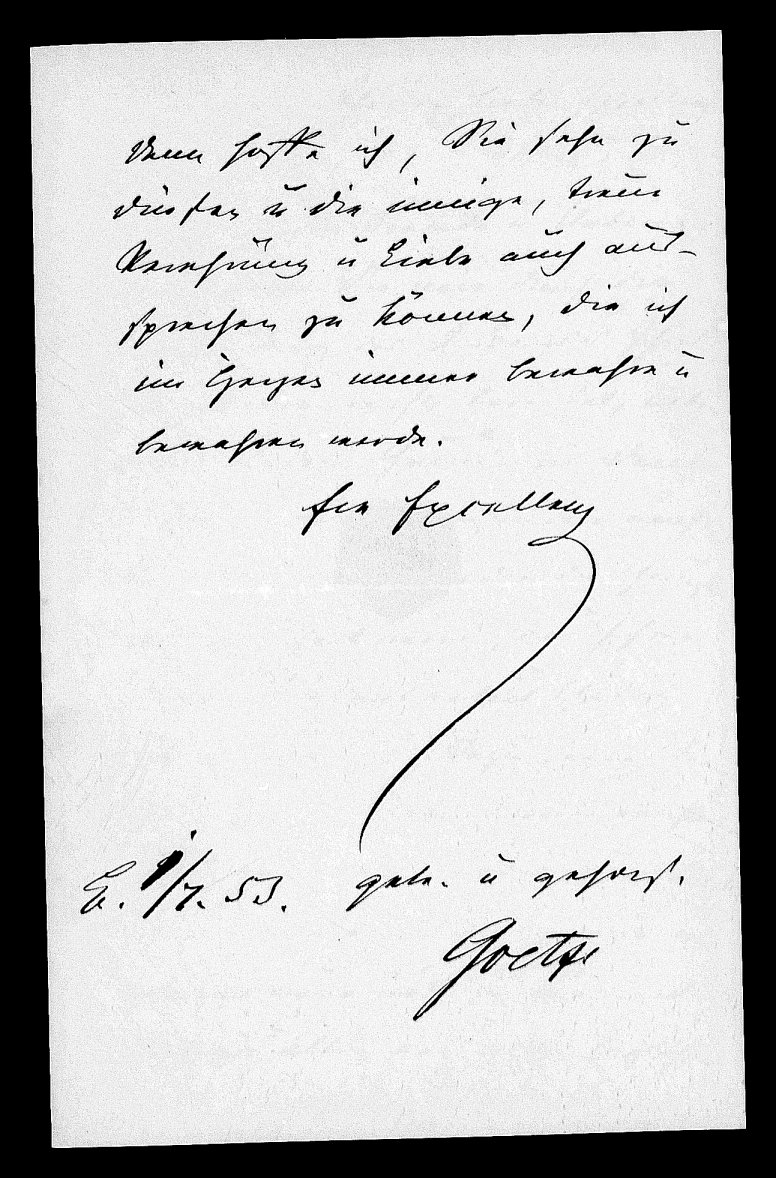 dann hoffe ich, Sie sehn zu
dürfen u die innige, treue
Verehrung u Liebe auch aus-
sprechen zu können, die ich
im Herzen immer bewahre u
bewahren werde.
Ew Excellenz
B. 1/7. 53. geh. u gehors.
Goethe